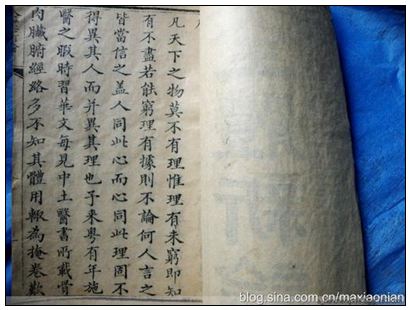 凡天下之物莫不有理惟理有未窮即知
有不盡若能窮理有據則不論何人言之
皆當信之盖人同此心而心同此理固不
得異其人而并異其理也予來粵有年施
醫之暇時習華文每見中土醫書所載骨
肉臟腑經絡多不知其體用輙為掩卷歎
blog.sina.com.cn/maxiaonian